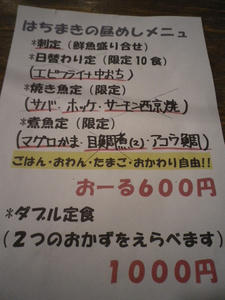 はちまきの昼めしメニュー
*刺定(鮮魚盛り合せ)
*日替わり定(限定10食)
(エビフライ+中おち)
*焼き魚定(限定)
(サバ・ホッケ・サーモン西京焼)
*煮魚定(限定)
(マグロかま・目鯛煮(2)・アコウ鯛)
ごはん・おわん・たまご・おかわり自由!!
おーる600円
*ダブル定食
(2つのおかずをえらべます)
1000円